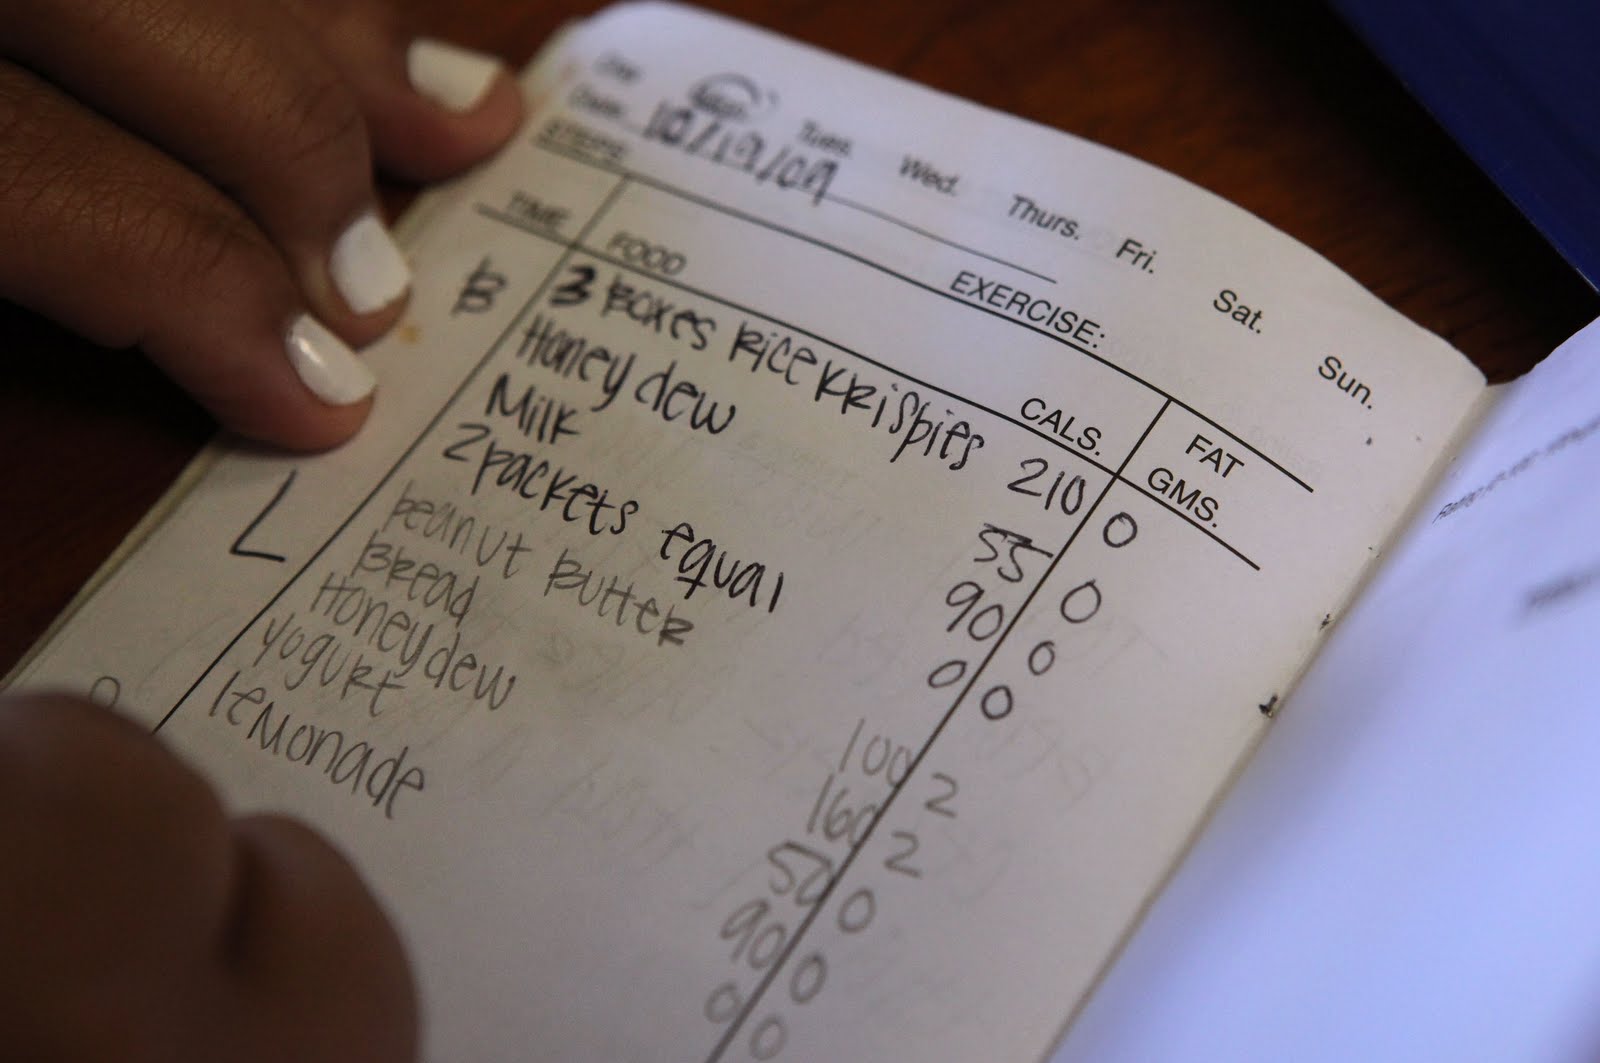 Day Mon. Tues. Wed. Thurs. Fri. Sat. Sun.
Date 10/19/09
STEPS: EXERCISE:
TIME FOOD CALS. FAT GMS.
B 3 Boxes Rice Krispies 210 0
Honeydew 55 0
Milk 90 0
2 packets equal 0 0
L peanut Butter 100 2
Bread 160 2
Honeydew 50 0
yogurt 90 0
lemonade 0 0